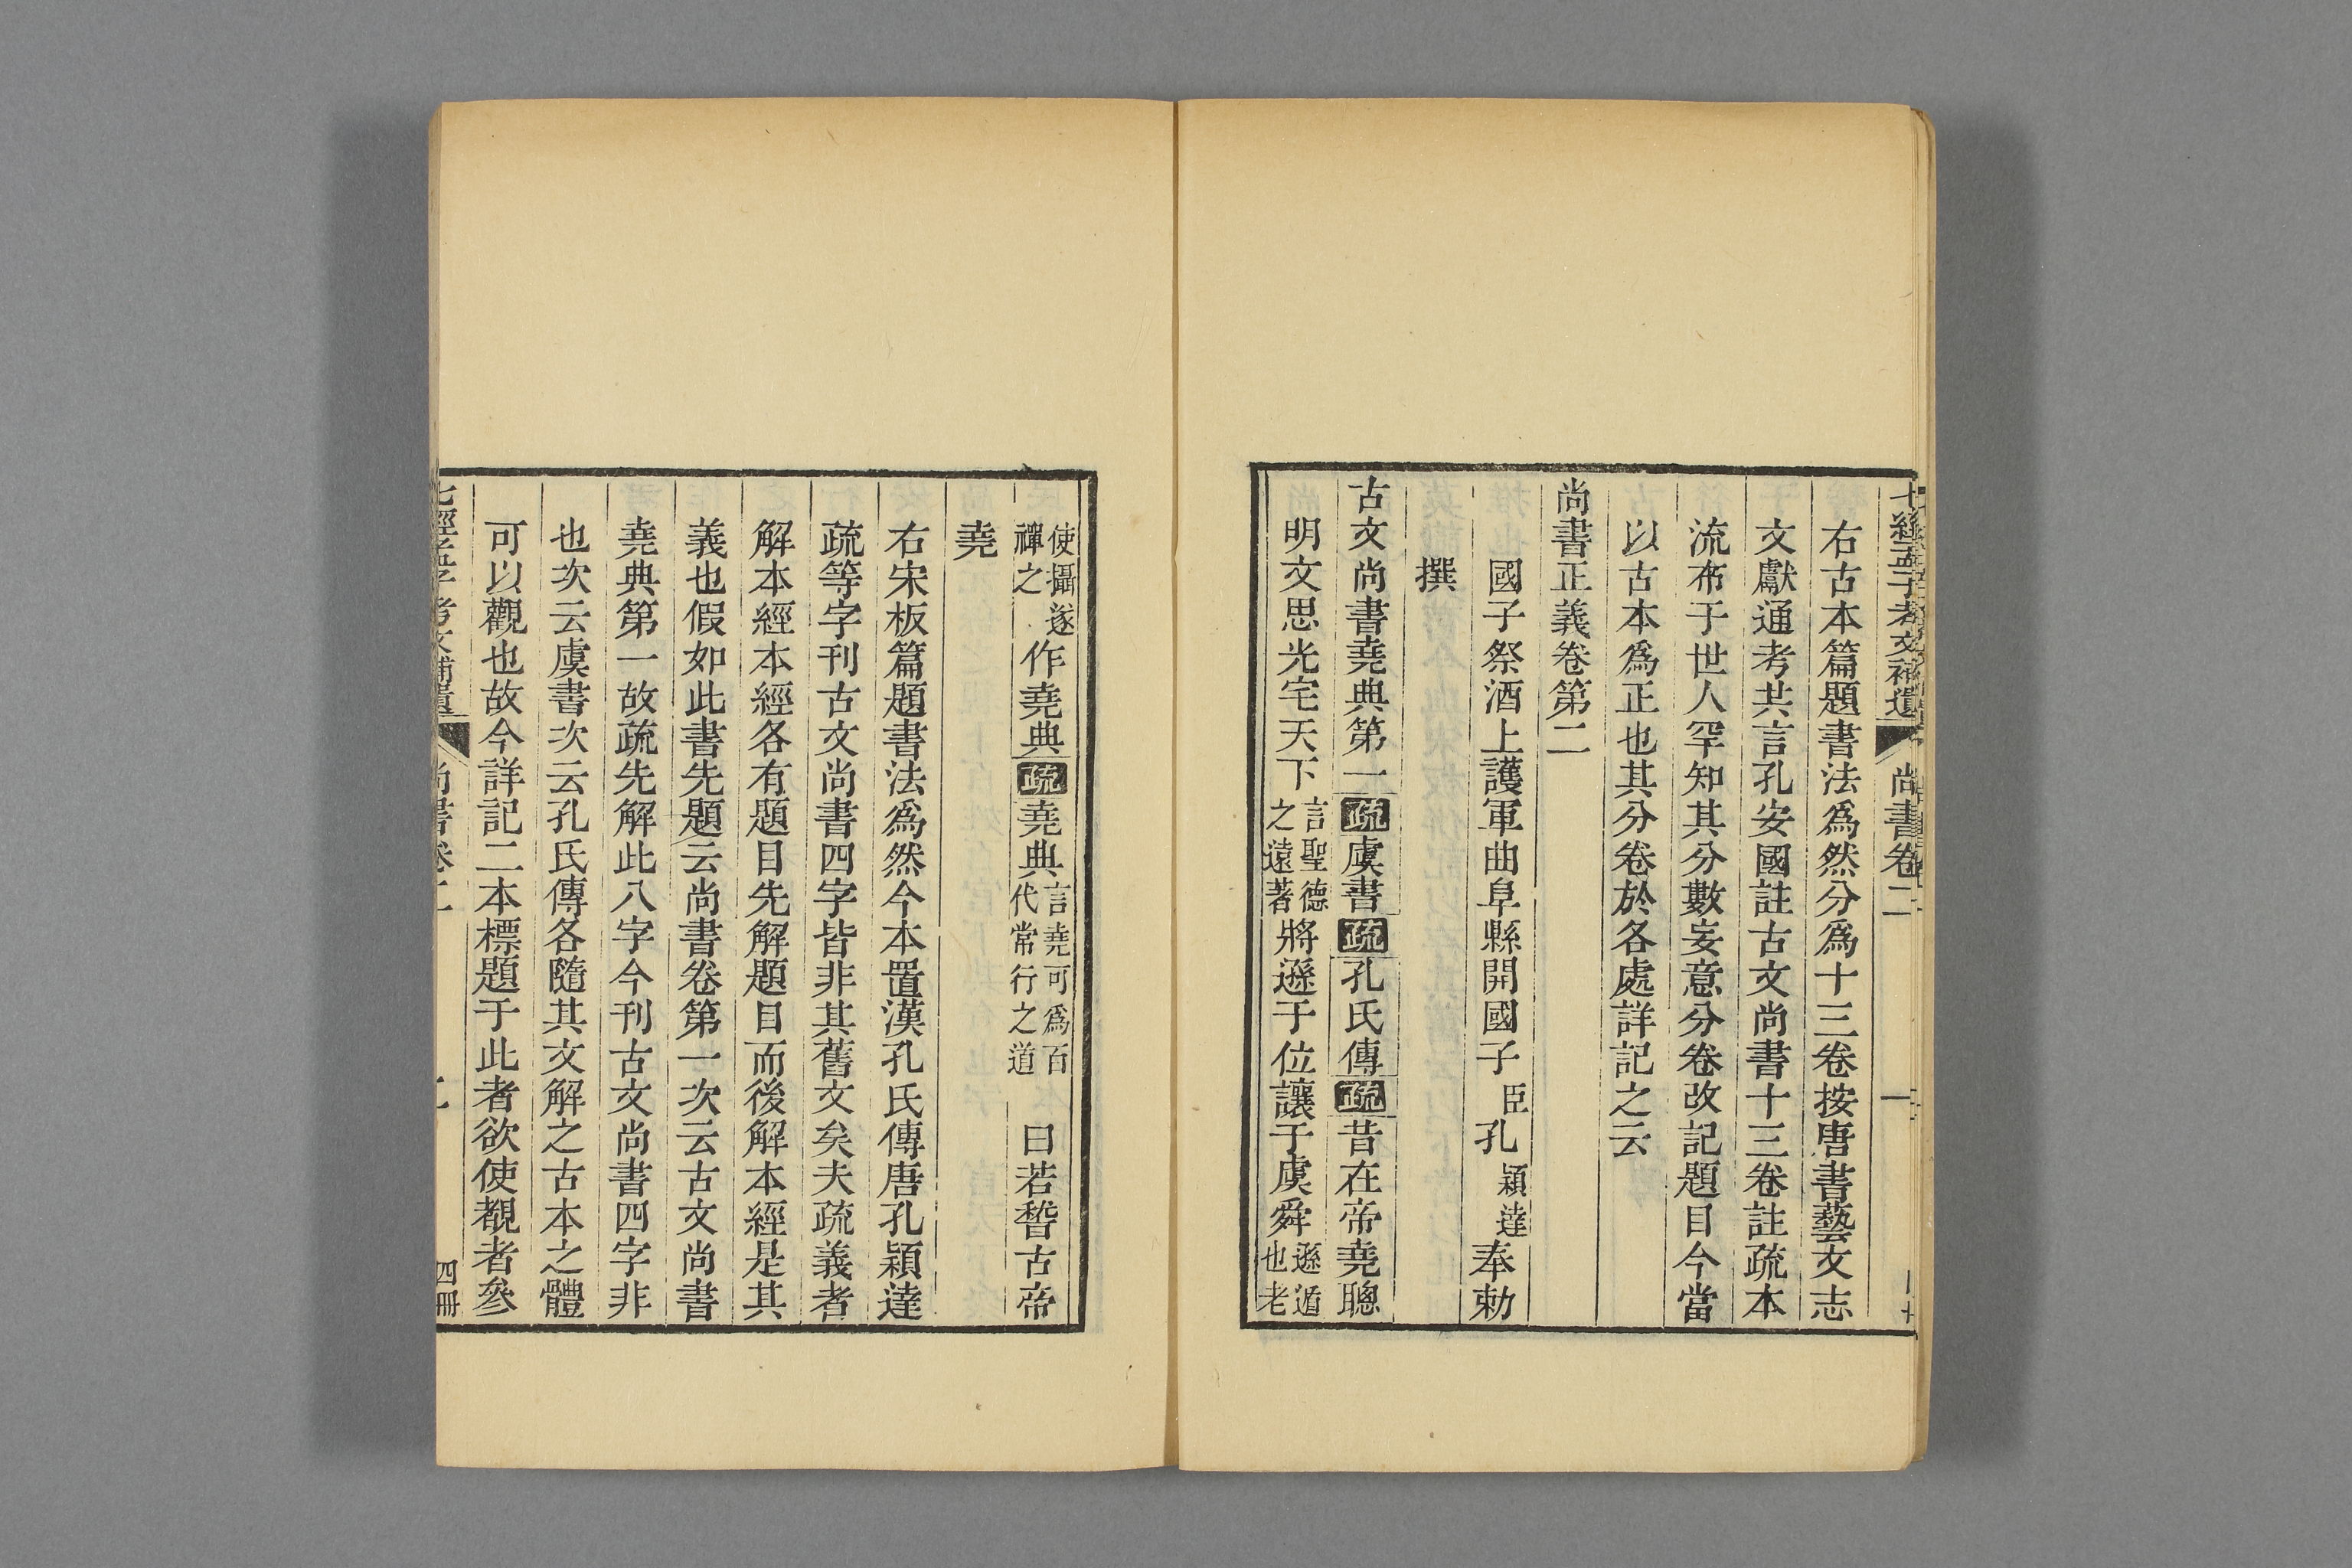 七經孟子考文補遺 尚書卷二 一
右古本篇題書法爲然分爲十三卷按唐書藝文志
文獻通考共言孔安國註古文尚書十三卷註疏本
流布于世人罕知其分數妄意分卷改記題目今當
以古本爲正也其分卷於各處詳記之云
尚書正義卷第二
國子祭酒上護軍曲阜縣開國子臣孔穎達奉勅
撰
古文尚書堯典第一疏虞書疏孔氏傳疏昔在帝堯聰
明文思光宅天下言聖德之遠著將遜于位讓于虞舜遜遁也老
使攝遂禪之作堯典疏堯典言堯可爲百代常行之道 曰若稽古帝
堯
右宋板篇題書法爲然今本置漢孔氏傳唐孔穎達
疏等字刊古文尚書四字皆非其舊文矣夫疏義者
解本經本經各有題目先解題目而後解本經是其
義也假如此書先題云尚書卷第一次云古文尚書
堯典第一故疏先解此八字今刊古文尚書四字非
也次云虞書次云孔氏傳各隨其文解之古本之體
可以觀也故今詳記二本標題于此者欲使覩者參
七經孟子考文補遺 尚書卷二 四冊